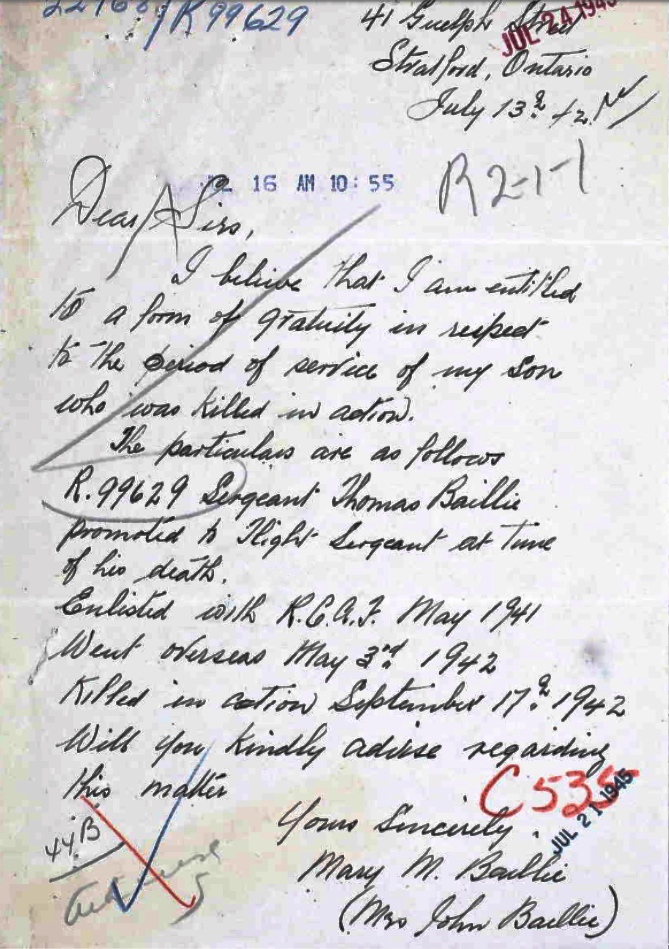 R99629
41 Guelph Street
JUL 24 1945
Stratford, Ontario
July 13th
16 AM 10:55
R2-1-1
Dear Sirs,
I believe that I am entitled
to a form of gratuity in respect
to the period of service of my son
who was killed in action.
The particulars are as follows
R.99629 Sergeant Thomas Baillie
promoted to Flight Sergeant at time
of his death.
Enlisted with R.C.A.F. May 1941
Went overseas May 3rd 1942
Killed in action September 17th 1942
Will you kindly advise regarding
this matter
C535
JUL 21 1945
44B
Yours Sincerely.
Mary M. Baillie
(Mrs John Baillie)